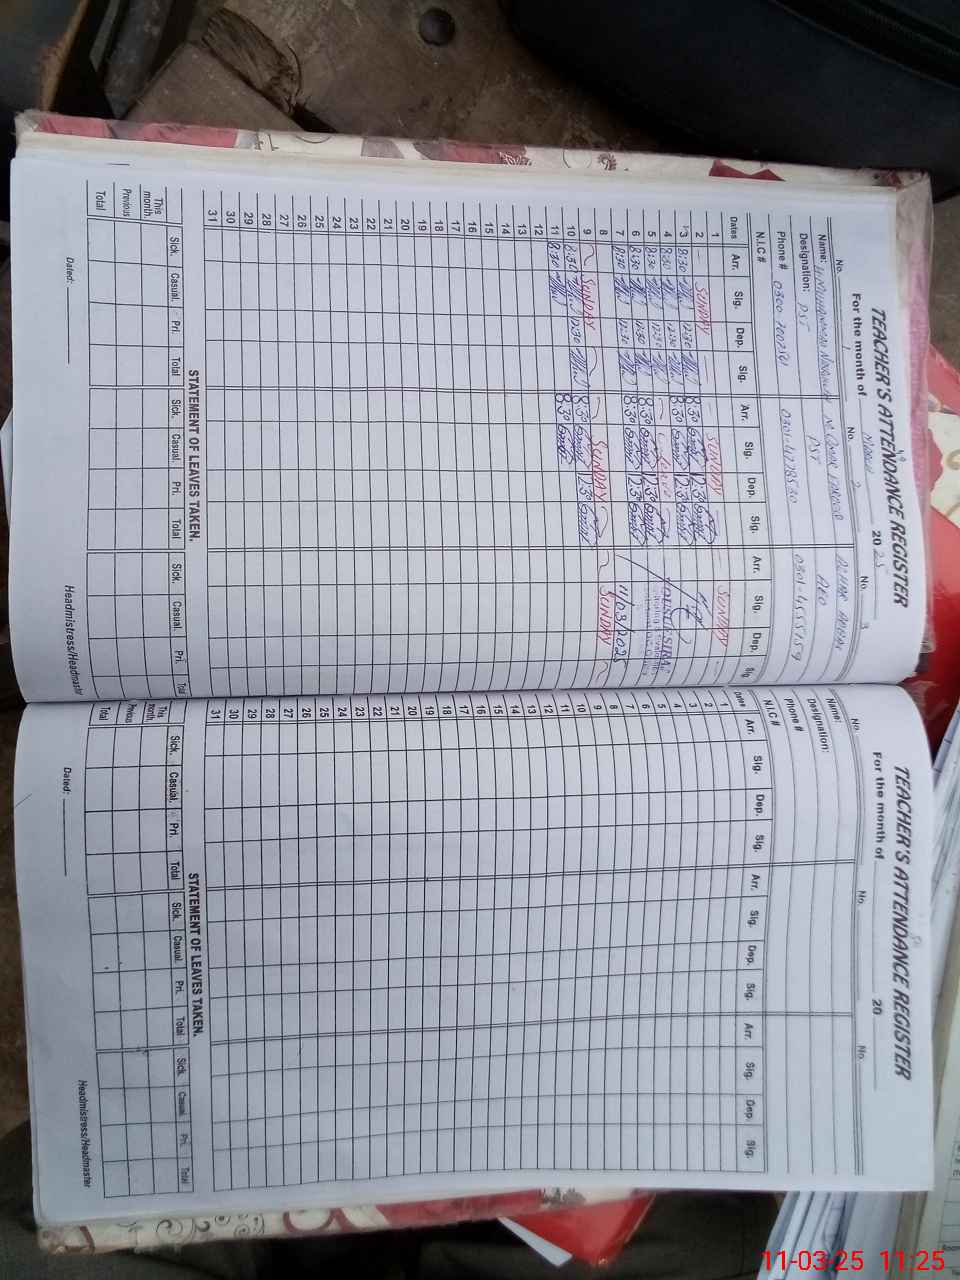 TEACHER'S ATTENDANCE REGISTER
For the month of March 2025
No. 1 No. 2 No. 3
Name:
Designation: PST PST AEO
Phone # 0301-4278530 0301-4555159
N.I.C #
Dates Arr. Sig. Dep. Sig. Arr. Sig. Dep. Sig. Arr. Sig. Dep. Sig
1
2 SUNDAY SUNDAY SUNDAY
3 8:30 12:30 8:30 12:30
4 8:30 12:30 8:30 12:30
5 8:30 12:30 Leave
6 8:30 12:30 8:30 12:30
7 8:30 12:30 8:30 12:30 11/03/2025
8
9 SUNDAY SUNDAY SUNDAY
10 8:30 12:30 8:30 12:30
11 8:30 8:30
12
13
14
15
16
17
18
19
20
21
22
23
24
25
26
27
28
29
30
31
STATEMENT OF LEAVES TAKEN.
Sick. Casual. Pri. Total Sick. Casual. Pri. Total Sick. Casual. Pri. Total
This month
Previous
Total
Dated: Headmistress/Headmaster
TEACHER'S ATTENDANCE REGISTER
For the month of 20
No. No. No.
Name:
Designation:
Phone #
N.I.C #
Dates Arr. Sig. Dep. Sig. Arr. Sig. Dep. Sig. Arr. Sig. Dep. Sig.
1
2
3
4
5
6
7
8
9
10
11
12
13
14
15
16
17
18
19
20
21
22
23
24
25
26
27
28
29
30
31
STATEMENT OF LEAVES TAKEN.
Sick. Casual. Pri. Total Sick. Casual. Pri. Total Sick. Casual Pri. Total
This month
Previous
Total
Dated: Headmistress/Headmaster
11-03-25 11:25